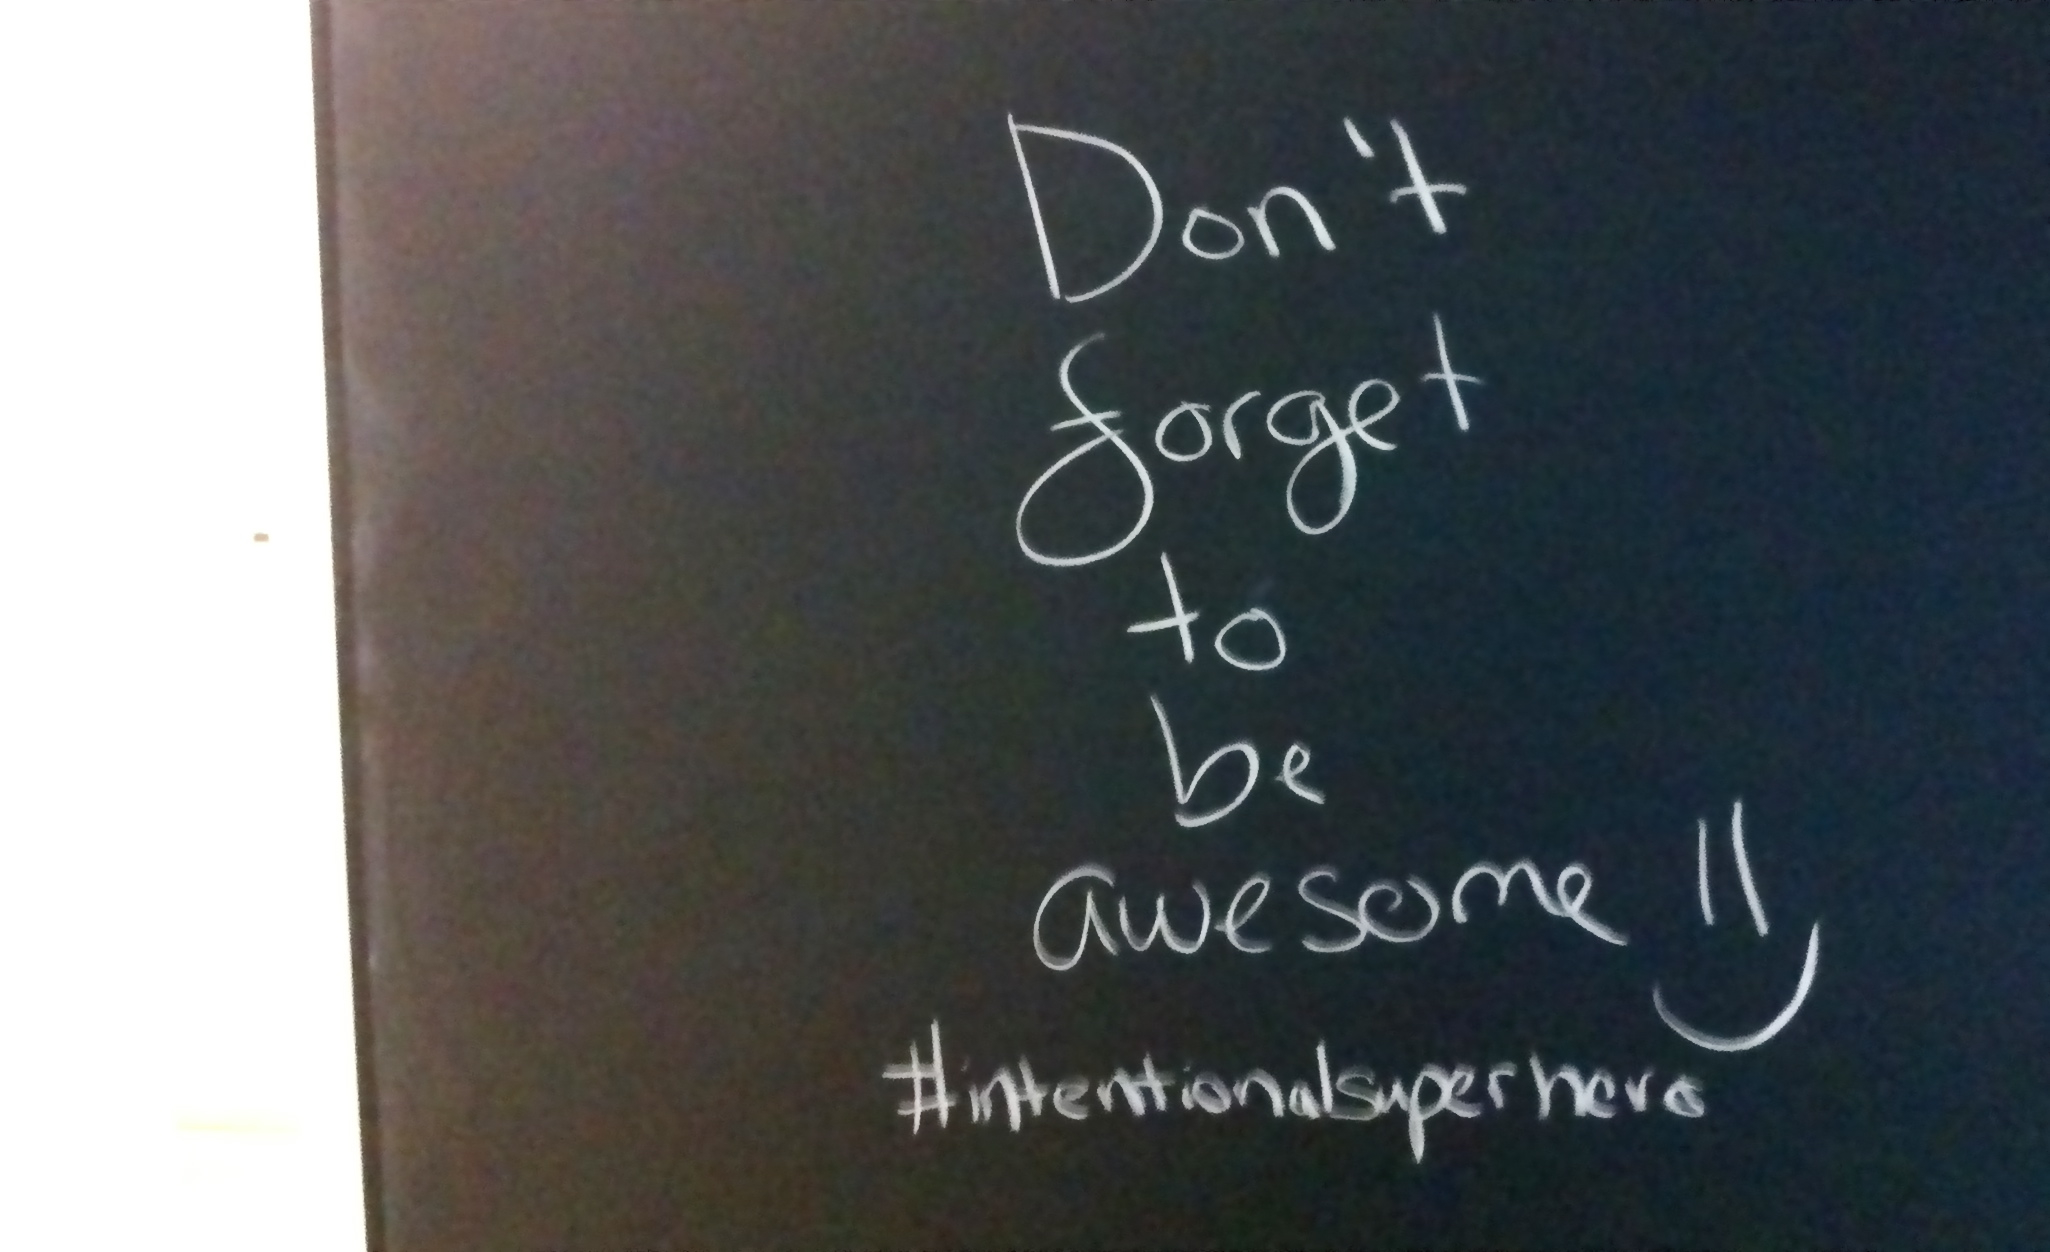 Don't
forget
to
be
awesome
#intentionalsuperhero